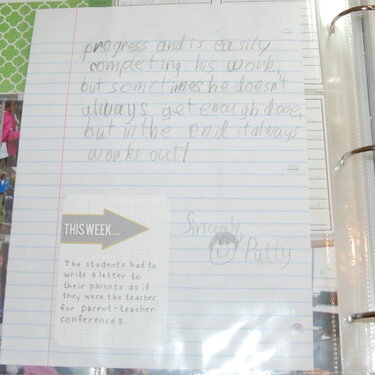 progress and is easily
completing his work,
but sometimes he doesn't
always get enough done,
but in the end it always
works out!
Sincerly
Patty
THIS WEEK...
The students had to
write a letter to
their parents as if
they were the teacher
for parent-teacher
conferences.